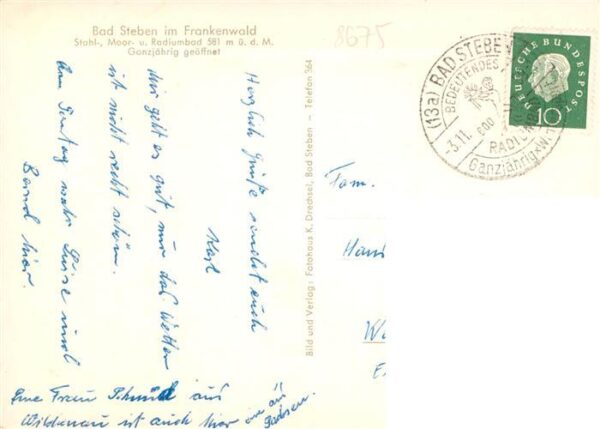 Bad Steben im Frankenwald
Stahl-, Moor- u. Radiumbad 581 m ü. d. M.
Ganzjährig geöffnet
8675
Herzlich Grüße sendet euch
Karl
Mir geht es gut, nur das Wetter
ist nicht recht schön.
Am Sontag war Luise und
Bernd hier.
Eine Frau Schmid aus
Wildenau ist auch hier
Bild und Verlag: Fotohaus K. Drechsel, Bad Steben – Telefon 364
(13a) BAD STEBEN
BEDEUTENDES
-3.11.
600
RADIUM
Ganzjährig
DEUTSCHE BUNDESPOST
10
Fam.